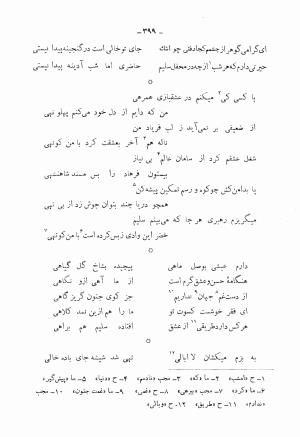 - ۳۹۹ -
ای گرامی گوهر از چشمم کجا رفتی چو اشک جای تو خالی است در گنجینه پیدا نیستی
حیرتی دارم که هر شب از چه در محفل سلیم حاضری اما شب آدینه پیدا نیستی
با کسی کی میکنم در عشقبازی همرهی
من که دایم از دل خود می‌کنم پهلو تهی
از ضعیفی بر نمی‌آید ز لب فریاد من
ناله هم آخر بعشقت کرد با من کوتهی
شغل عشقم کرد از سامان عالم بی نیاز
بیستون فرهاد را بس مسند شاهنشهی
پا بدامن کش چو کوه و رسم تمکین پیشه کن
همچو دریا چند بتوان جوش زد از بی تهی
میگریزم رهبری هر جا که می‌بینم سلیم
خضر این وادی ز بس کرده است با من کوتهی
دارم عیشی بوصل ماهی پیچیده بشاخ گل گیاهی
هنگامهٔ حسن و عشق گرم است از ما آهی ازو نگاهی
از دست غم جهان نداریم جز کوی جنون گریزگاهی
ای فقر خوشست کسوت تو ما را هم ازین نمد کلاهی
هر کس دارد طریقی از عشق افتاده سلیم هم براهی
به بزم میکشان لا ابالی تهی شد شیشه جای باده خالی